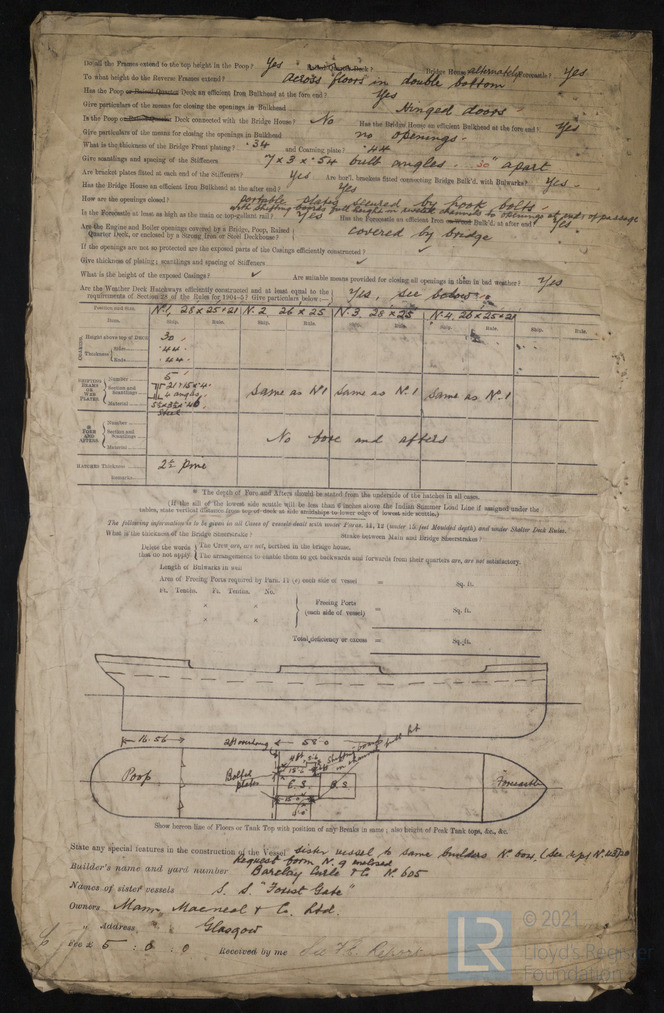 Do all the Frames extend to the top height in the Poop? Yes Raised Quarter Deck? Bridge House alternately Forecastle? Yes
To what height do the Reverse Frames extend? across floors in double bottom
Has the Poop or Raised Quarter Deck an efficient Iron Bulkhead at the fore end? Yes
Give particulars of the means for closing the openings in Bulkhead Hinged doors
Is the Poop or Raised Quarter Deck connected with the Bridge House? No Has the Bridge House an efficient Bulkhead at the fore end? Yes
Give particulars of the means for closing the openings in Bulkhead no openings.
What is the thickness of the Bridge Front plating? .34 and Coaming plate? .44
Give scantlings and spacing of the Stiffeners 7 x 3 x .54 bulb angles. 30" apart
Are bracket plates fitted at each end of the Stiffeners? Yes Are hor'l. brackets fitted connecting Bridge Bulk'd. with Bulwarks? Yes.
Has the Bridge House an efficient Iron Bulkhead at the after end? Yes
How are the openings closed? portable plates secured by hook bolts.
with shifting boards full height in channels to openings at ends of passage
Is the Forecastle at least as high as the main or top-gallant rail? Yes Has the Forecastle an efficient Iron Bulkhead at after end? Yes
Are the Engine and Boiler openings covered by a Bridge, Poop, Raised Quarter Deck, or enclosed by a Strong Iron or Steel Deckhouse? covered by bridge
If the openings are not so protected are the exposed parts of the Casings efficiently constructed? ✓
Give thickness of plating; scantlings and spacing of Stiffeners ✓
What is the height of the exposed Casings? ✓ Are suitable means provided for closing all openings in them in bad weather? Yes
Are the Weather Deck Hatchways efficiently constructed and at least equal to the
requirements of Section 28 of the Rules for 1904-5? Give particulars below:— Yes, see below
Position and Size. No 1, 28 x 25 x 21 No 2, 26 x 25 No 3, 28 x 25 No 4, 26 x 25 x 21
Item. Ship. Rule. Ship. Rule. Ship. Rule. Ship. Rule.
COAMINGS Height above top of DECK 30
Thickness Sides .44
Ends .44
SHIFTING BEAMS OR WEB PLATES Number 5
Section and Scantlings Same as No 1 Same as No. 1 Same as No. 1
Material Steel
* FORE AND AFTERS Number
Section and Scantlings No fore and afters
Material
HATCHES Thickness 2½ Pine
Remarks
* The depth of Fore and Afters should be stated from the underside of the hatches in all cases.
(If the sill of the lowest side scuttle will be less than 6 inches above the Indian Summer Load Line if assigned under the
tables, state vertical distance from top of deck at side amidships to lower edge of lowest side scuttle.)
The following information is to be given in all Cases of vessels dealt with under Paras. 11, 12 (under 15 feet Moulded depth) and under Shelter Deck Rules.
What is the thickness of the Bridge Sheerstrake? Strake between Main and Bridge Sheerstrakes?
Delete the words that do not apply { The Crew are, are not, berthed in the bridge house.
The arrangements to enable them to get backwards and forwards from their quarters are, are not satisfactory.
Length of Bulwarks in use
Area of Freeing Ports required by Para. 11 (e) each side of vessel = Sq. ft.
Ft. Tenths. Ft. Tenths. No.
x x } Freeing Ports (each side of vessel) = Sq. ft.
x x
Total deficiency or excess = Sq. ft.
16.56 58.0
Poop Bolted plates C.S. B.S. Forecastle
Show hereon line of Floors or Tank Top with position of any Breaks in same; also height of Peak Tank tops, &c., &c.
State any special features in the construction of the Vessel sister vessel to same builders No 600.
Request form No. 9 enclosed
Builder's name and yard number Barclay Curle & Co No. 605
Names of sister vessels S. S. "Forest Gate"
Owners Mann Macneal & Co. Ltd.
" Address Glasgow
Fee £ 5 : 0 : 0 Received by me
LR © 2021
Lloyd's Register
Foundation